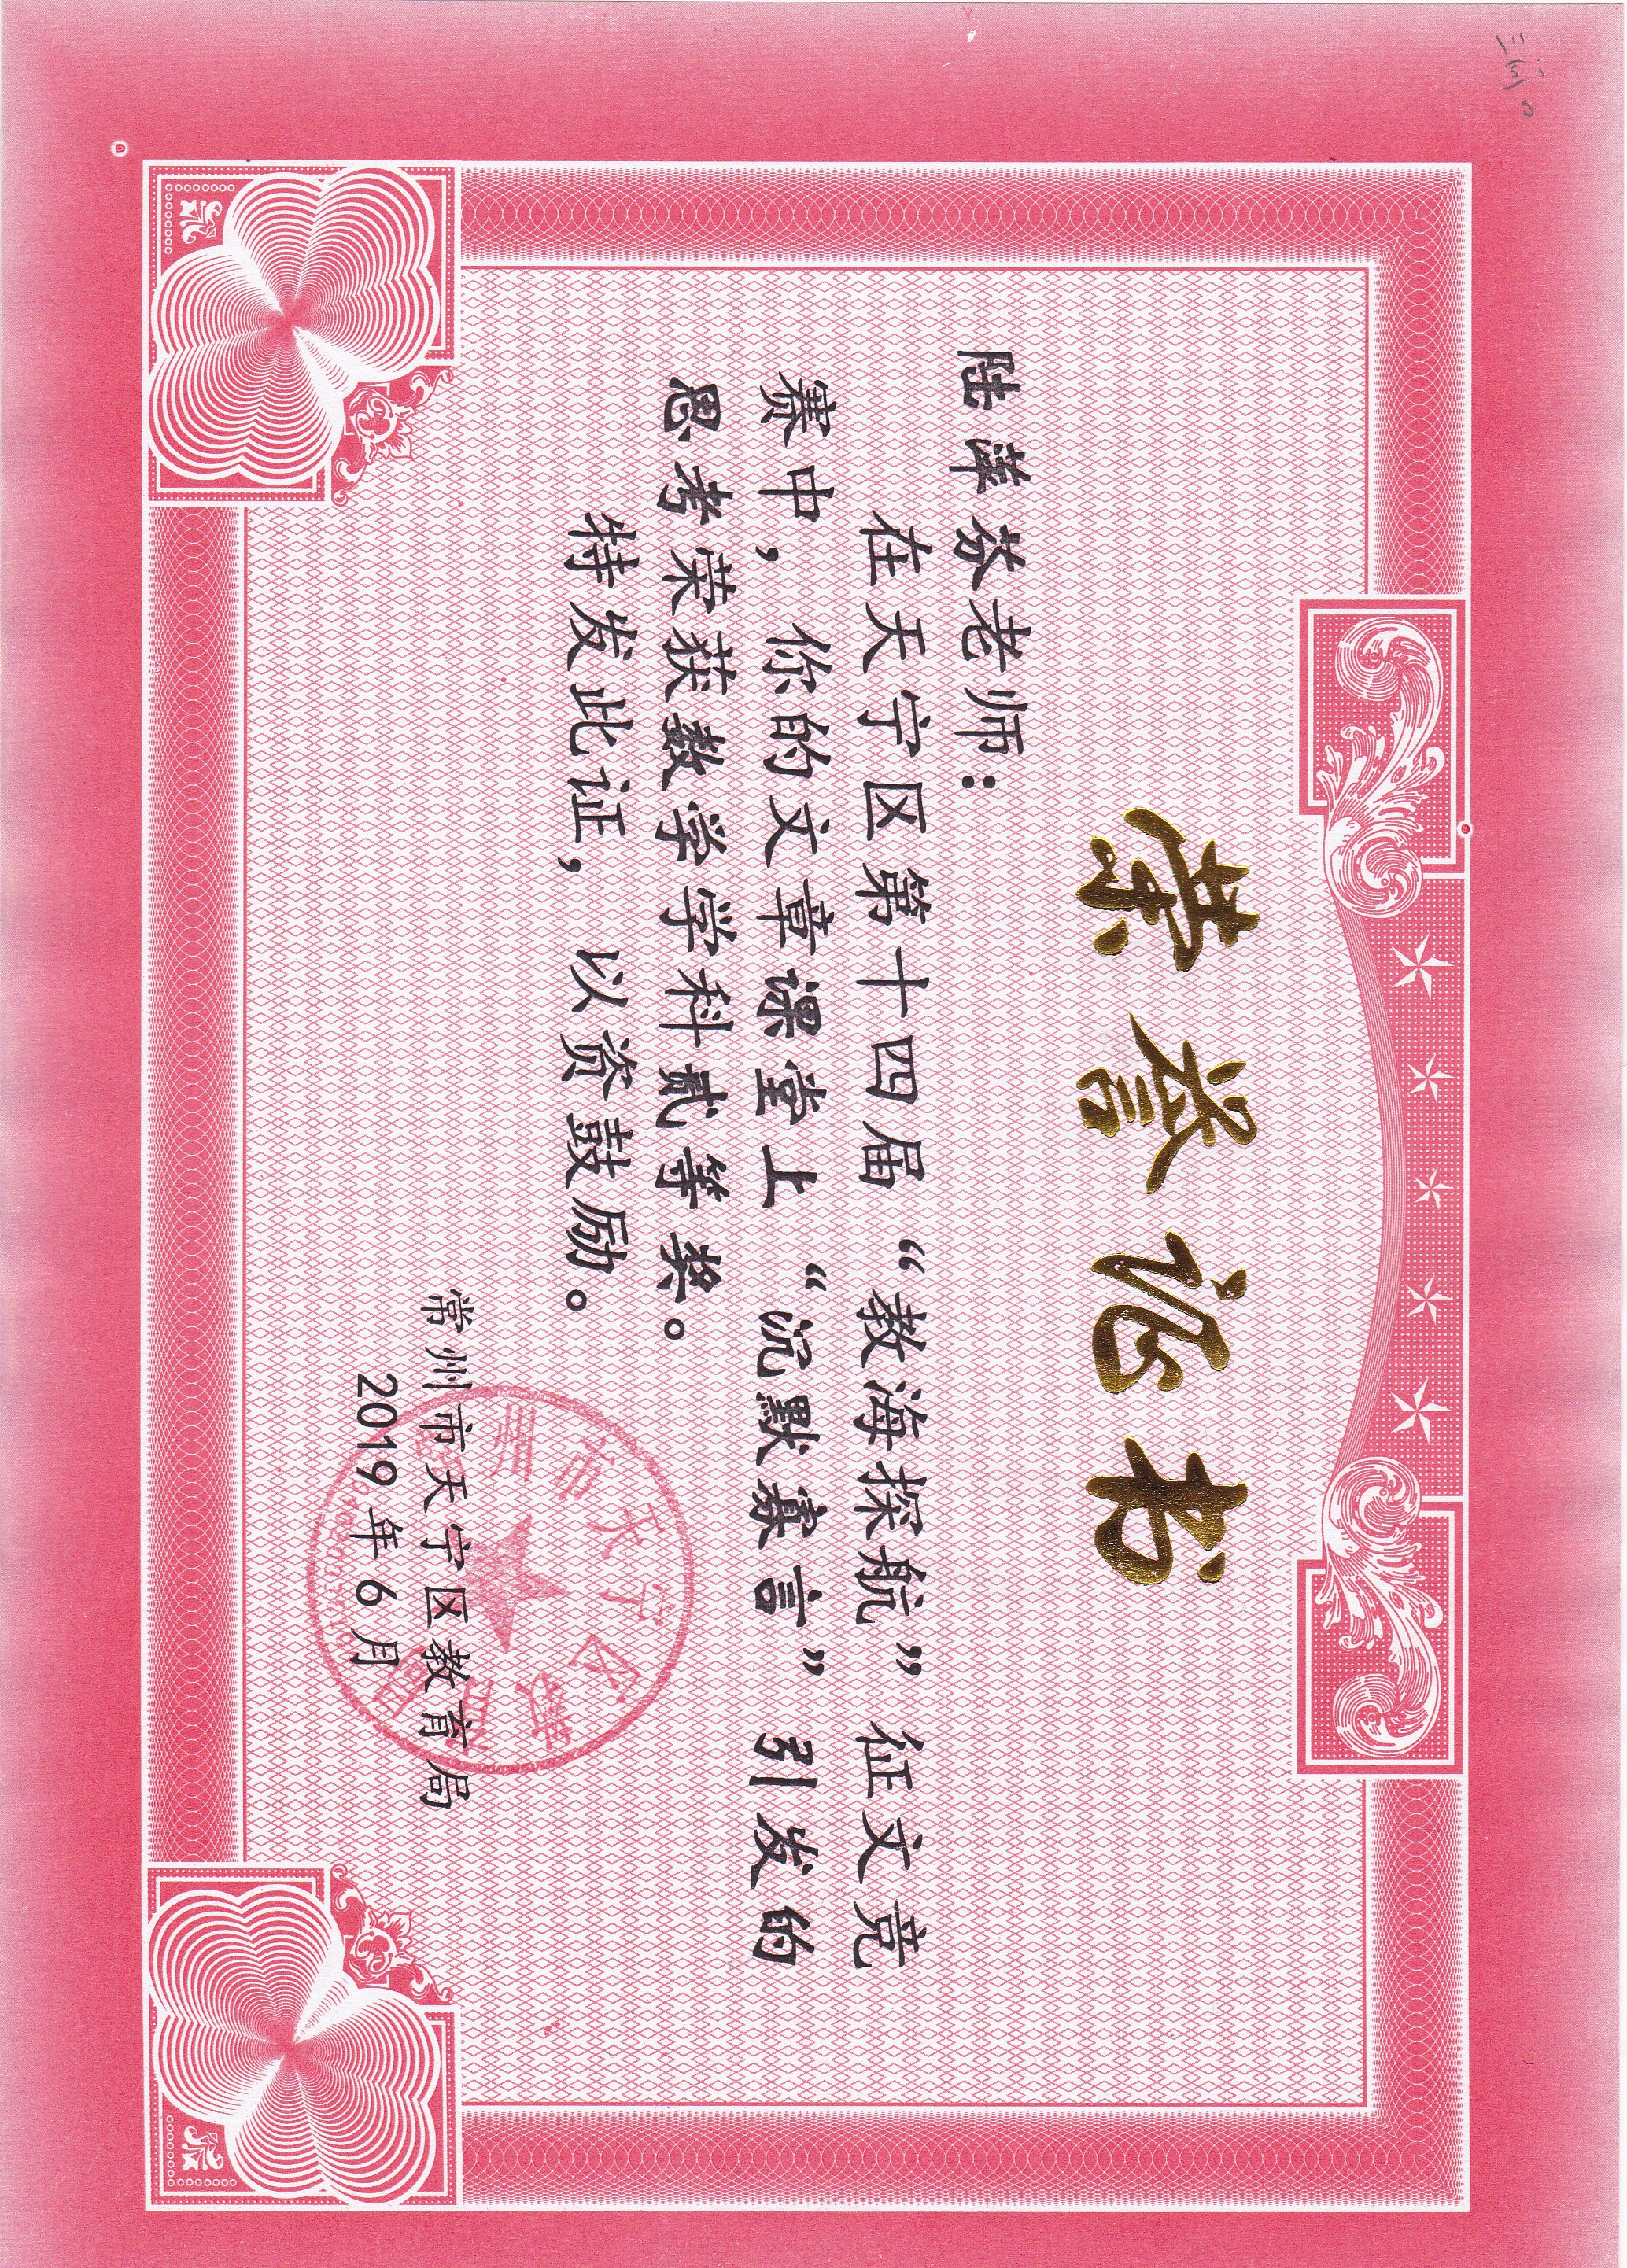 荣誉证书
陆萍芬老师：
在天宁区第十四届“教海探航”征文竞
赛中，你的文章课堂上“沉默寡言”引发的
思考荣获数学学科贰等奖。
特发此证，以资鼓励。
常州市天宁区教育局
2019年6月
州市天宁区教育局